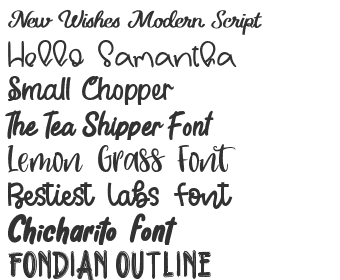 New Wishes Modern Script
Hello Samantha
Small Chopper
The Tea Shipper Font
Lemon Grass Font
Bestiest Labs font
Chicharito font
FONDIAN OUTLINE